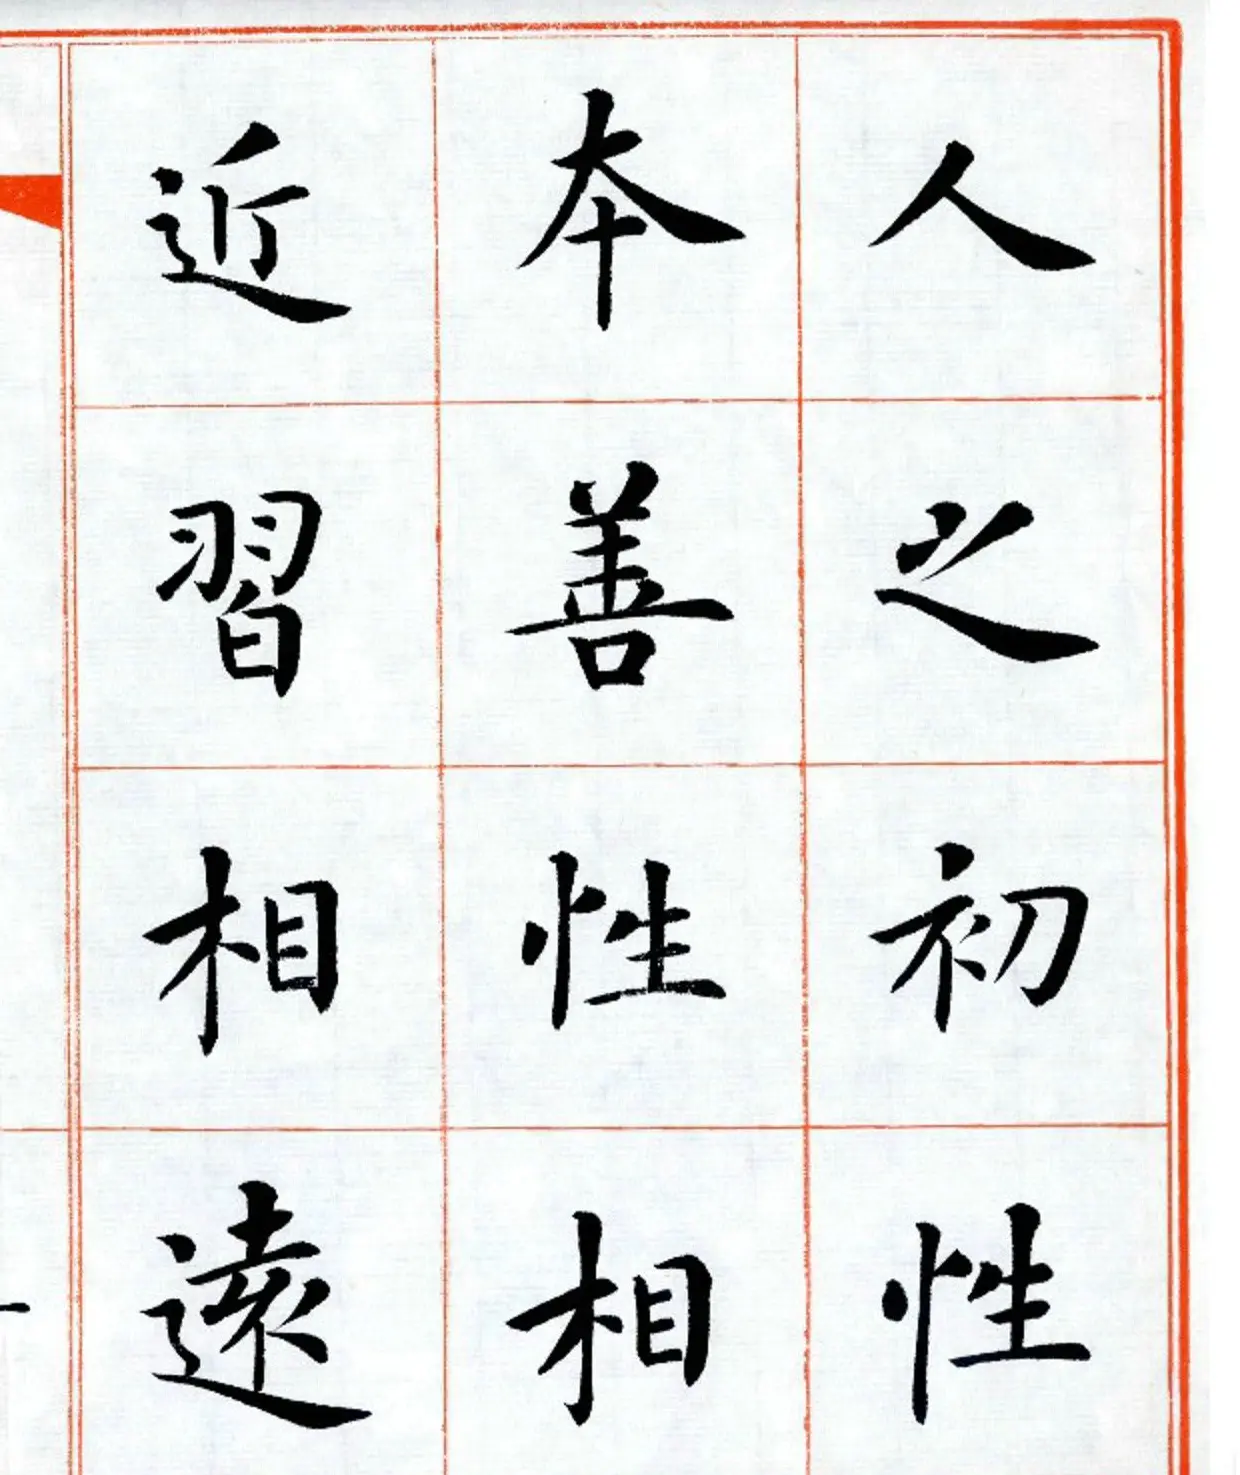 人之初性
本善性相
近習相遠